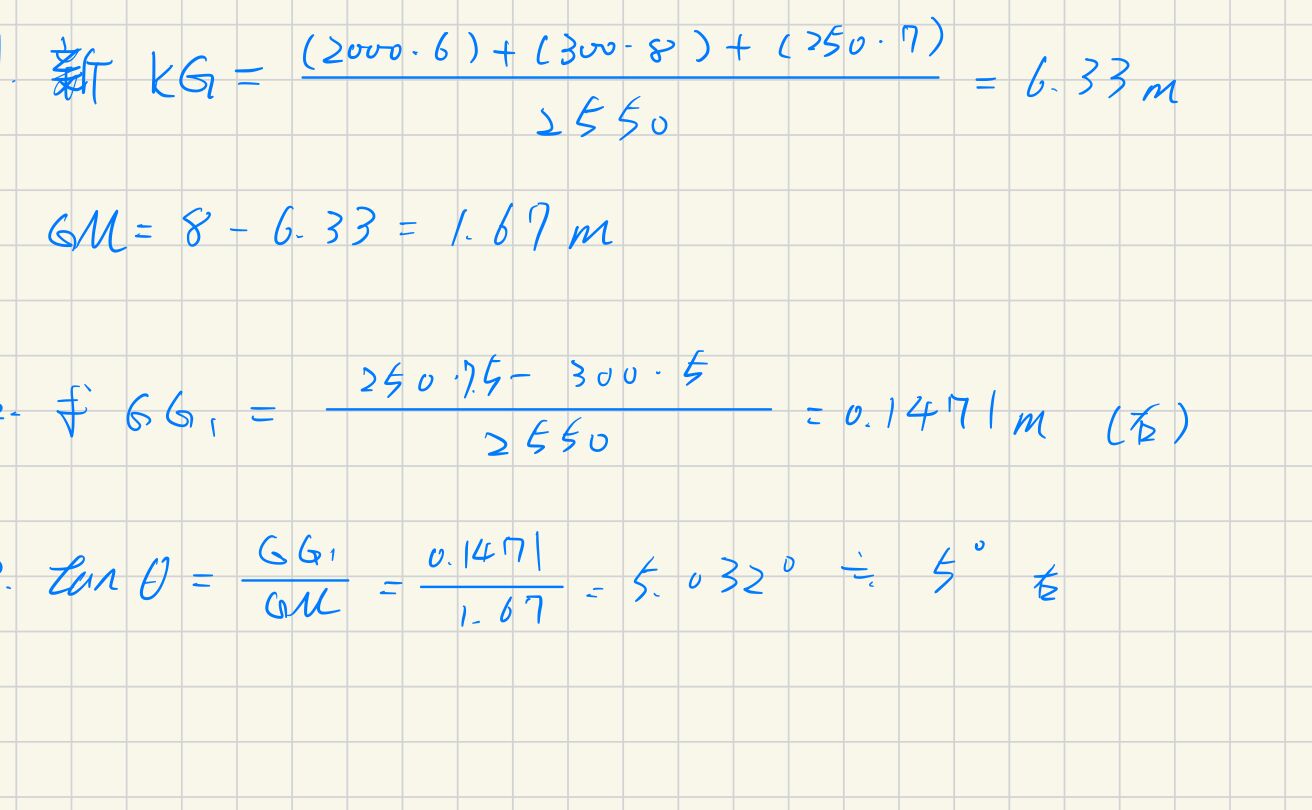 1. 新 KG = (2000·6) + (300·8) + (250·7) / 2550 = 6.33 m
GM = 8 - 6.33 = 1.67 m
GG₁ = 250·7.5 - 300·5 / 2550 = 0.1471 m (右)
tan θ = GG₁ / GM = 0.1471 / 1.67 = 5.032° ≒ 5° 右